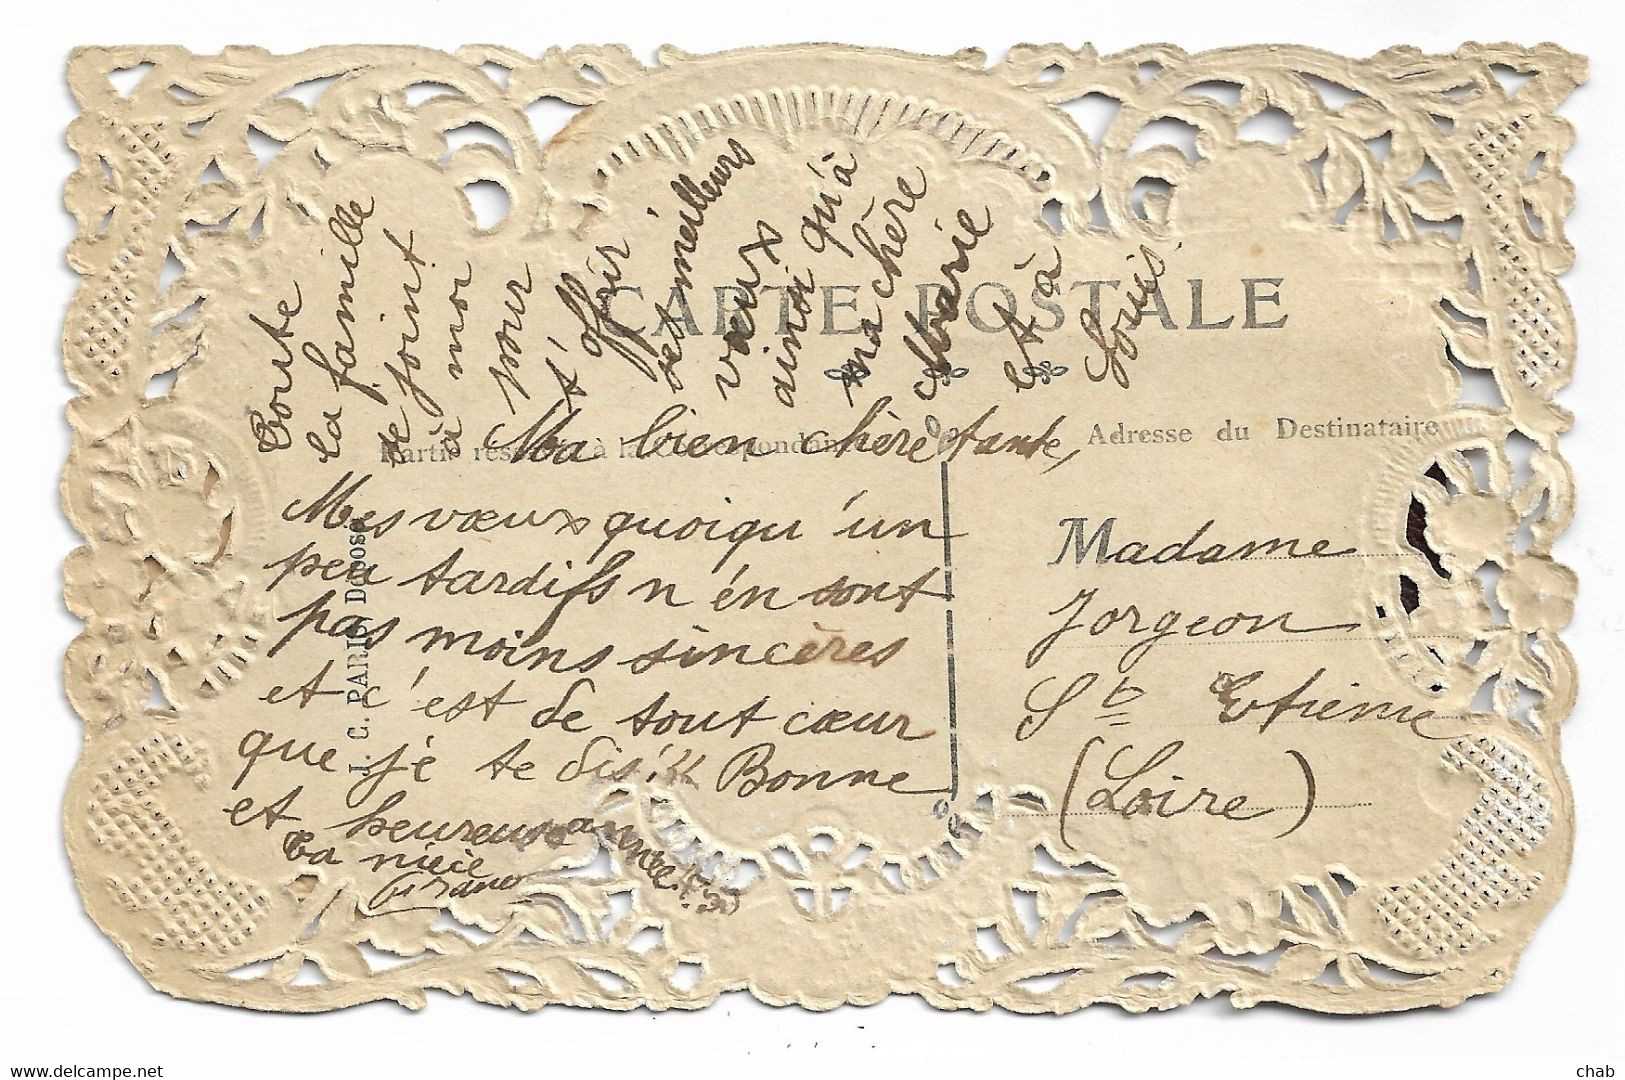 CARTE POSTALE
Partie réservée à la Correspondance
Adresse du Destinataire
J. C. PARIS Déposé
Ma bien chère tante,
Mes vœux quoiqu'un
peu tardifs n'én sont
pas moins sincères
et c'est de tout cœur
que je te dis "Bonne
et heureuse année"
Ta nièce
Toute
la famille
se joint
a moi
pour
t'offrir
ses meilleurs
vœux
ainsi qu'à
ma chère
Marie
et à
Louis.
Madame
Jorgeon
St Etienne
(Loire)
chab
www.delcampe.net